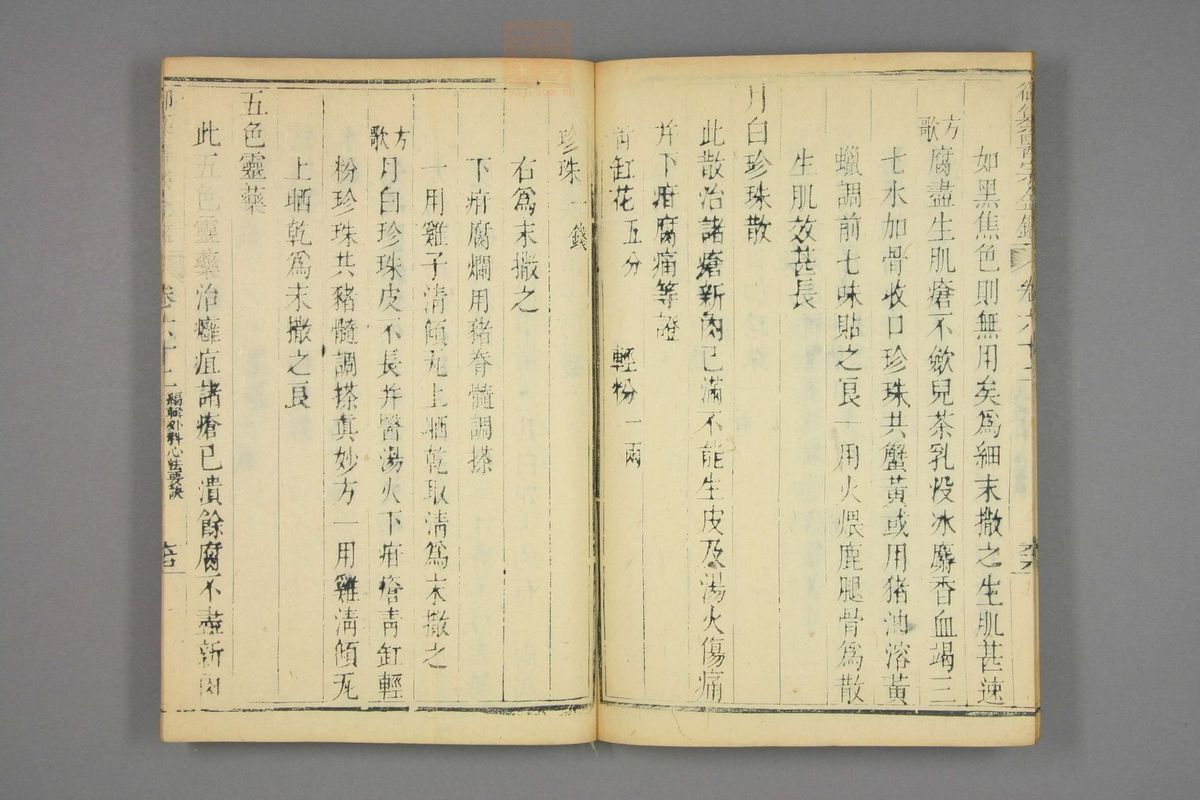 如黑焦色則無用矣為細末撒之生肌甚速
方歌
腐盡生肌瘡不歛兒茶乳沒冰麝香血竭三
七水加骨收口珍珠共蟹黃或用猪油溶黃
蠟調前七味貼之良一用火煨鹿腿骨為散
生肌效甚長
月白珍珠散
此散治諸瘡新肉已滿不能生皮及湯火傷痛
并下疳腐痛等證
青缸花五分 輕粉一兩
珍珠一錢
右為末撒之
下疳腐爛用猪脊髓調搽
一用雞子清傾瓦上晒乾取清為末撒之
方歌
月白珍珠皮不長并醫湯火下疳瘡青缸輕
粉珍珠共豬髓調搽真妙方一用雞清傾瓦
上晒乾為末撒之良
五色靈藥
此五色靈藥治癰疽諸瘡已潰餘腐不盡新肉
卷六十二 編輯外科心法要訣